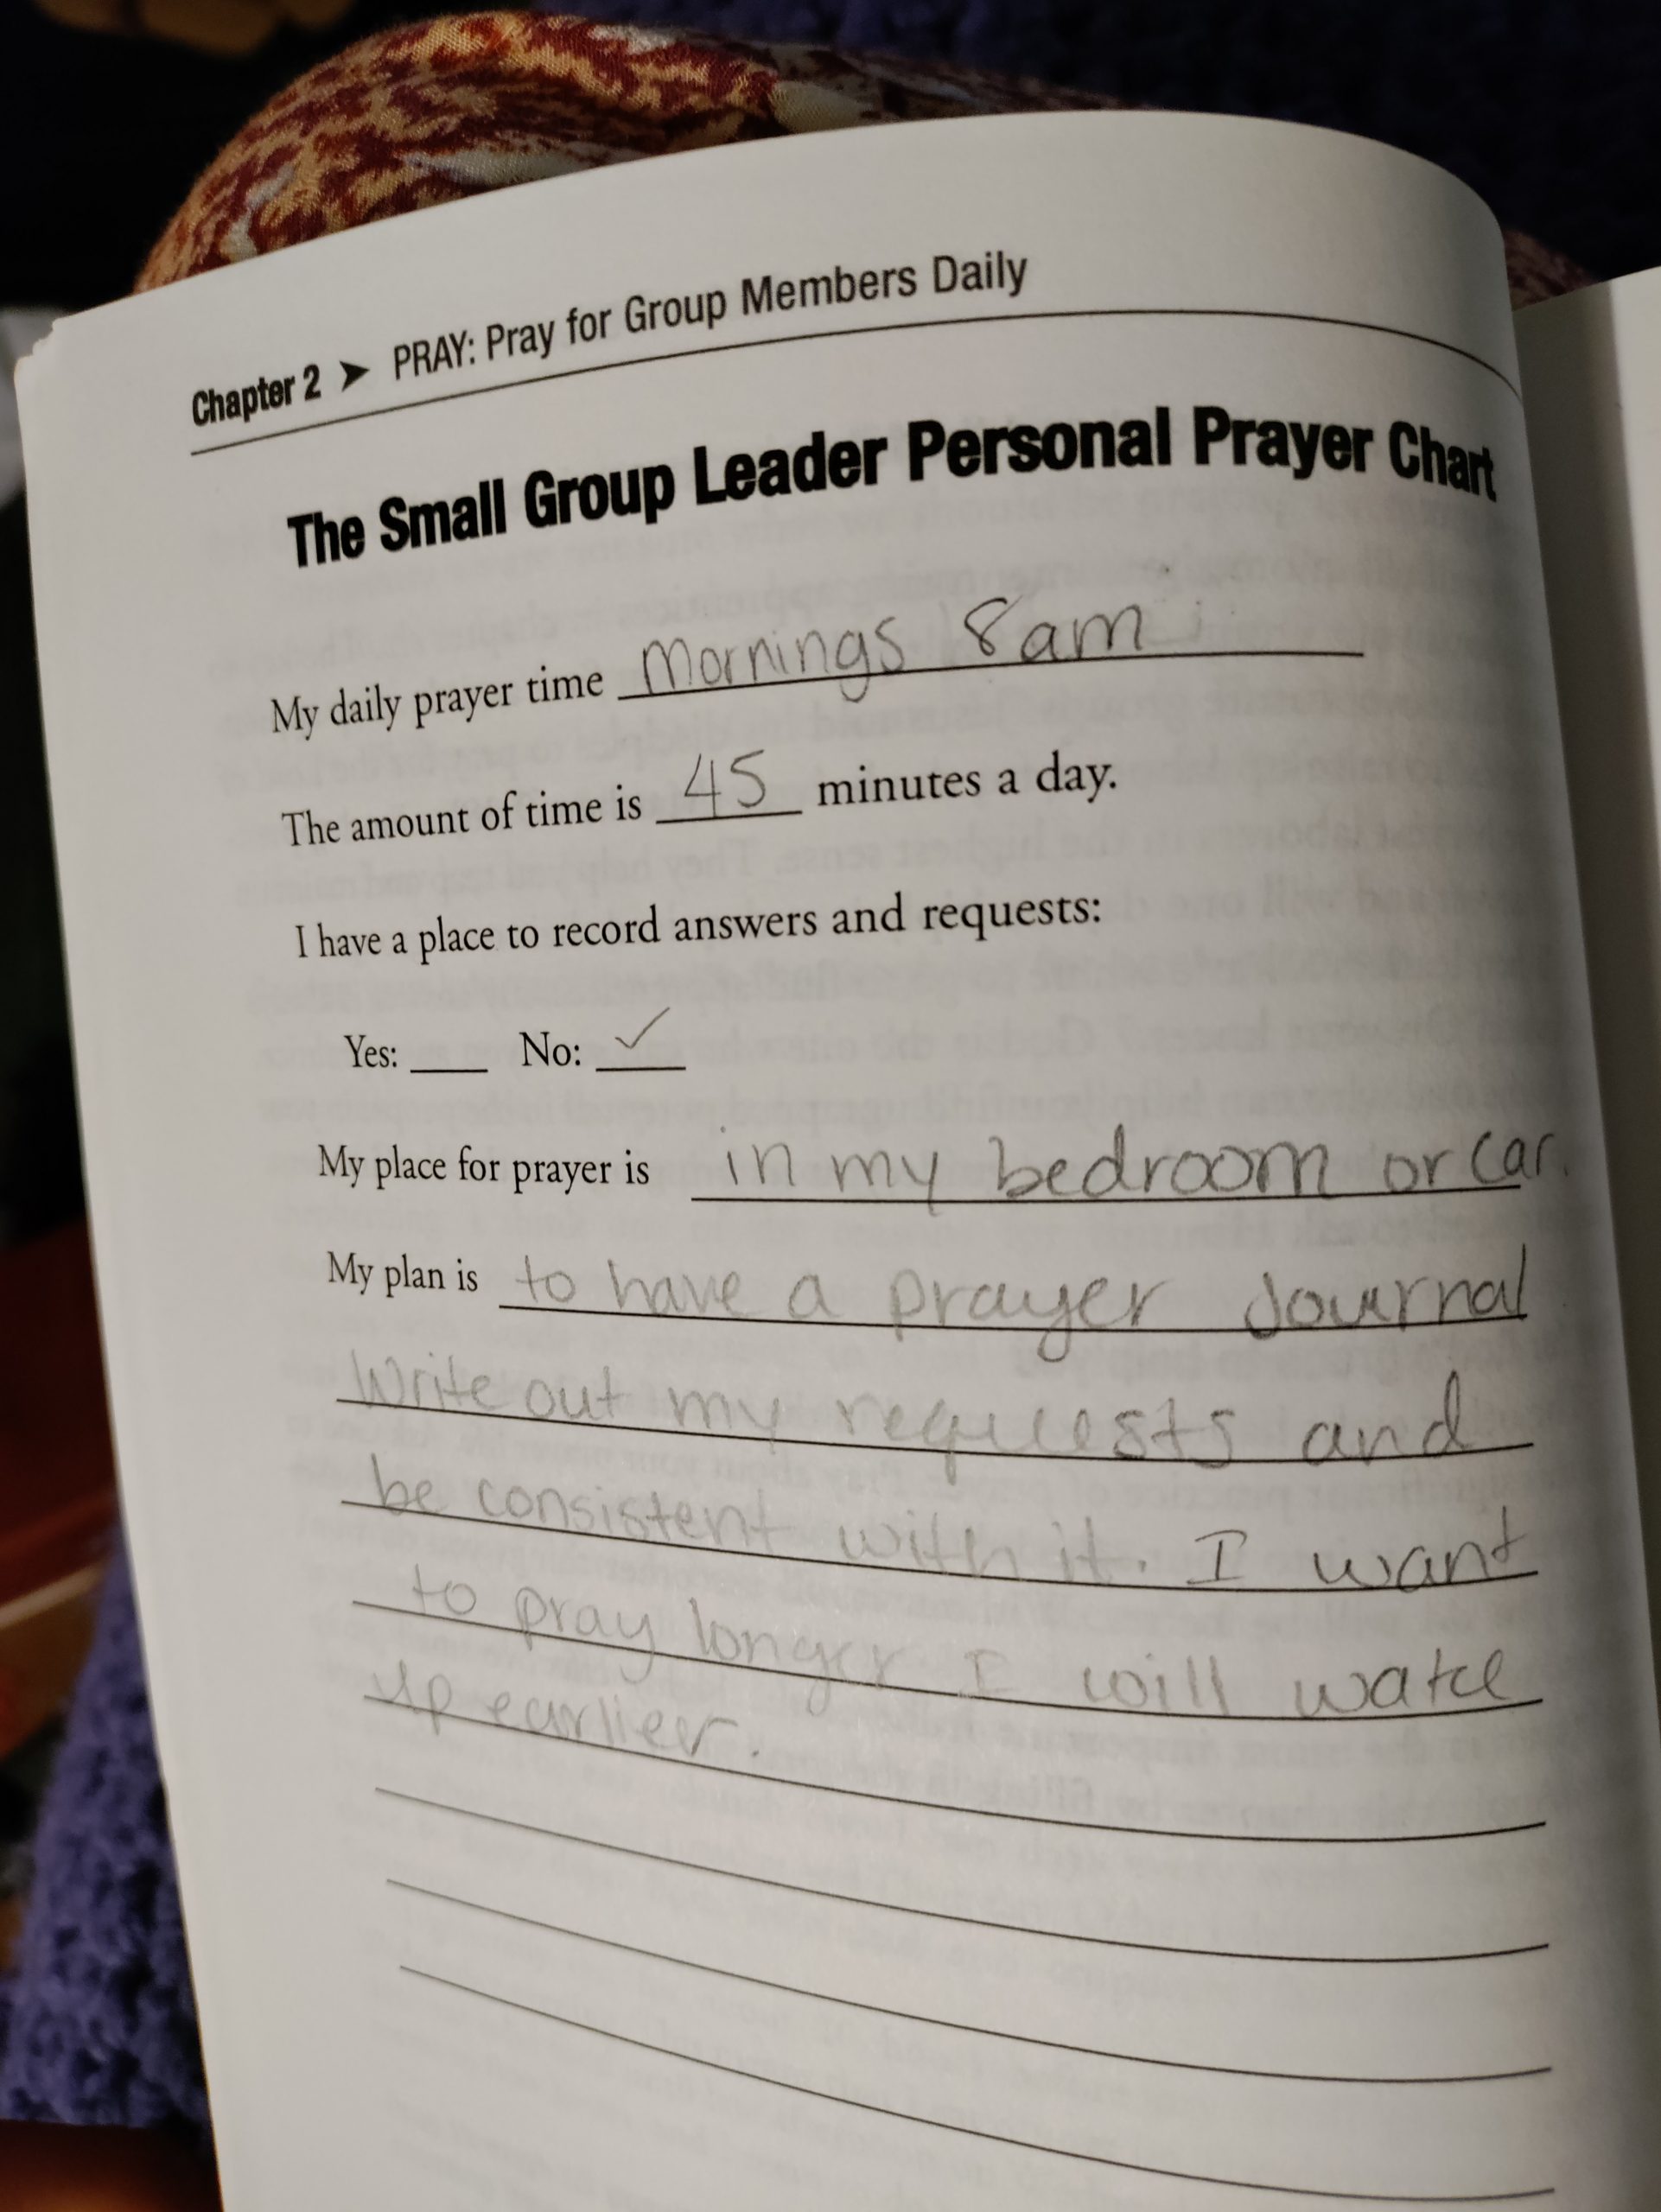 Chapter 2 ➤ PRAY: Pray for Group Members Daily
The Small Group Leader Personal Prayer Chart
My daily prayer time Mornings 8am
The amount of time is 45 minutes a day.
I have a place to record answers and requests:
Yes: ___ No: ✓
My place for prayer is in my bedroom or car.
My plan is to have a prayer Journal
Write out my requests and
be consistent with it. I want
to pray longer I will wake
up earlier.